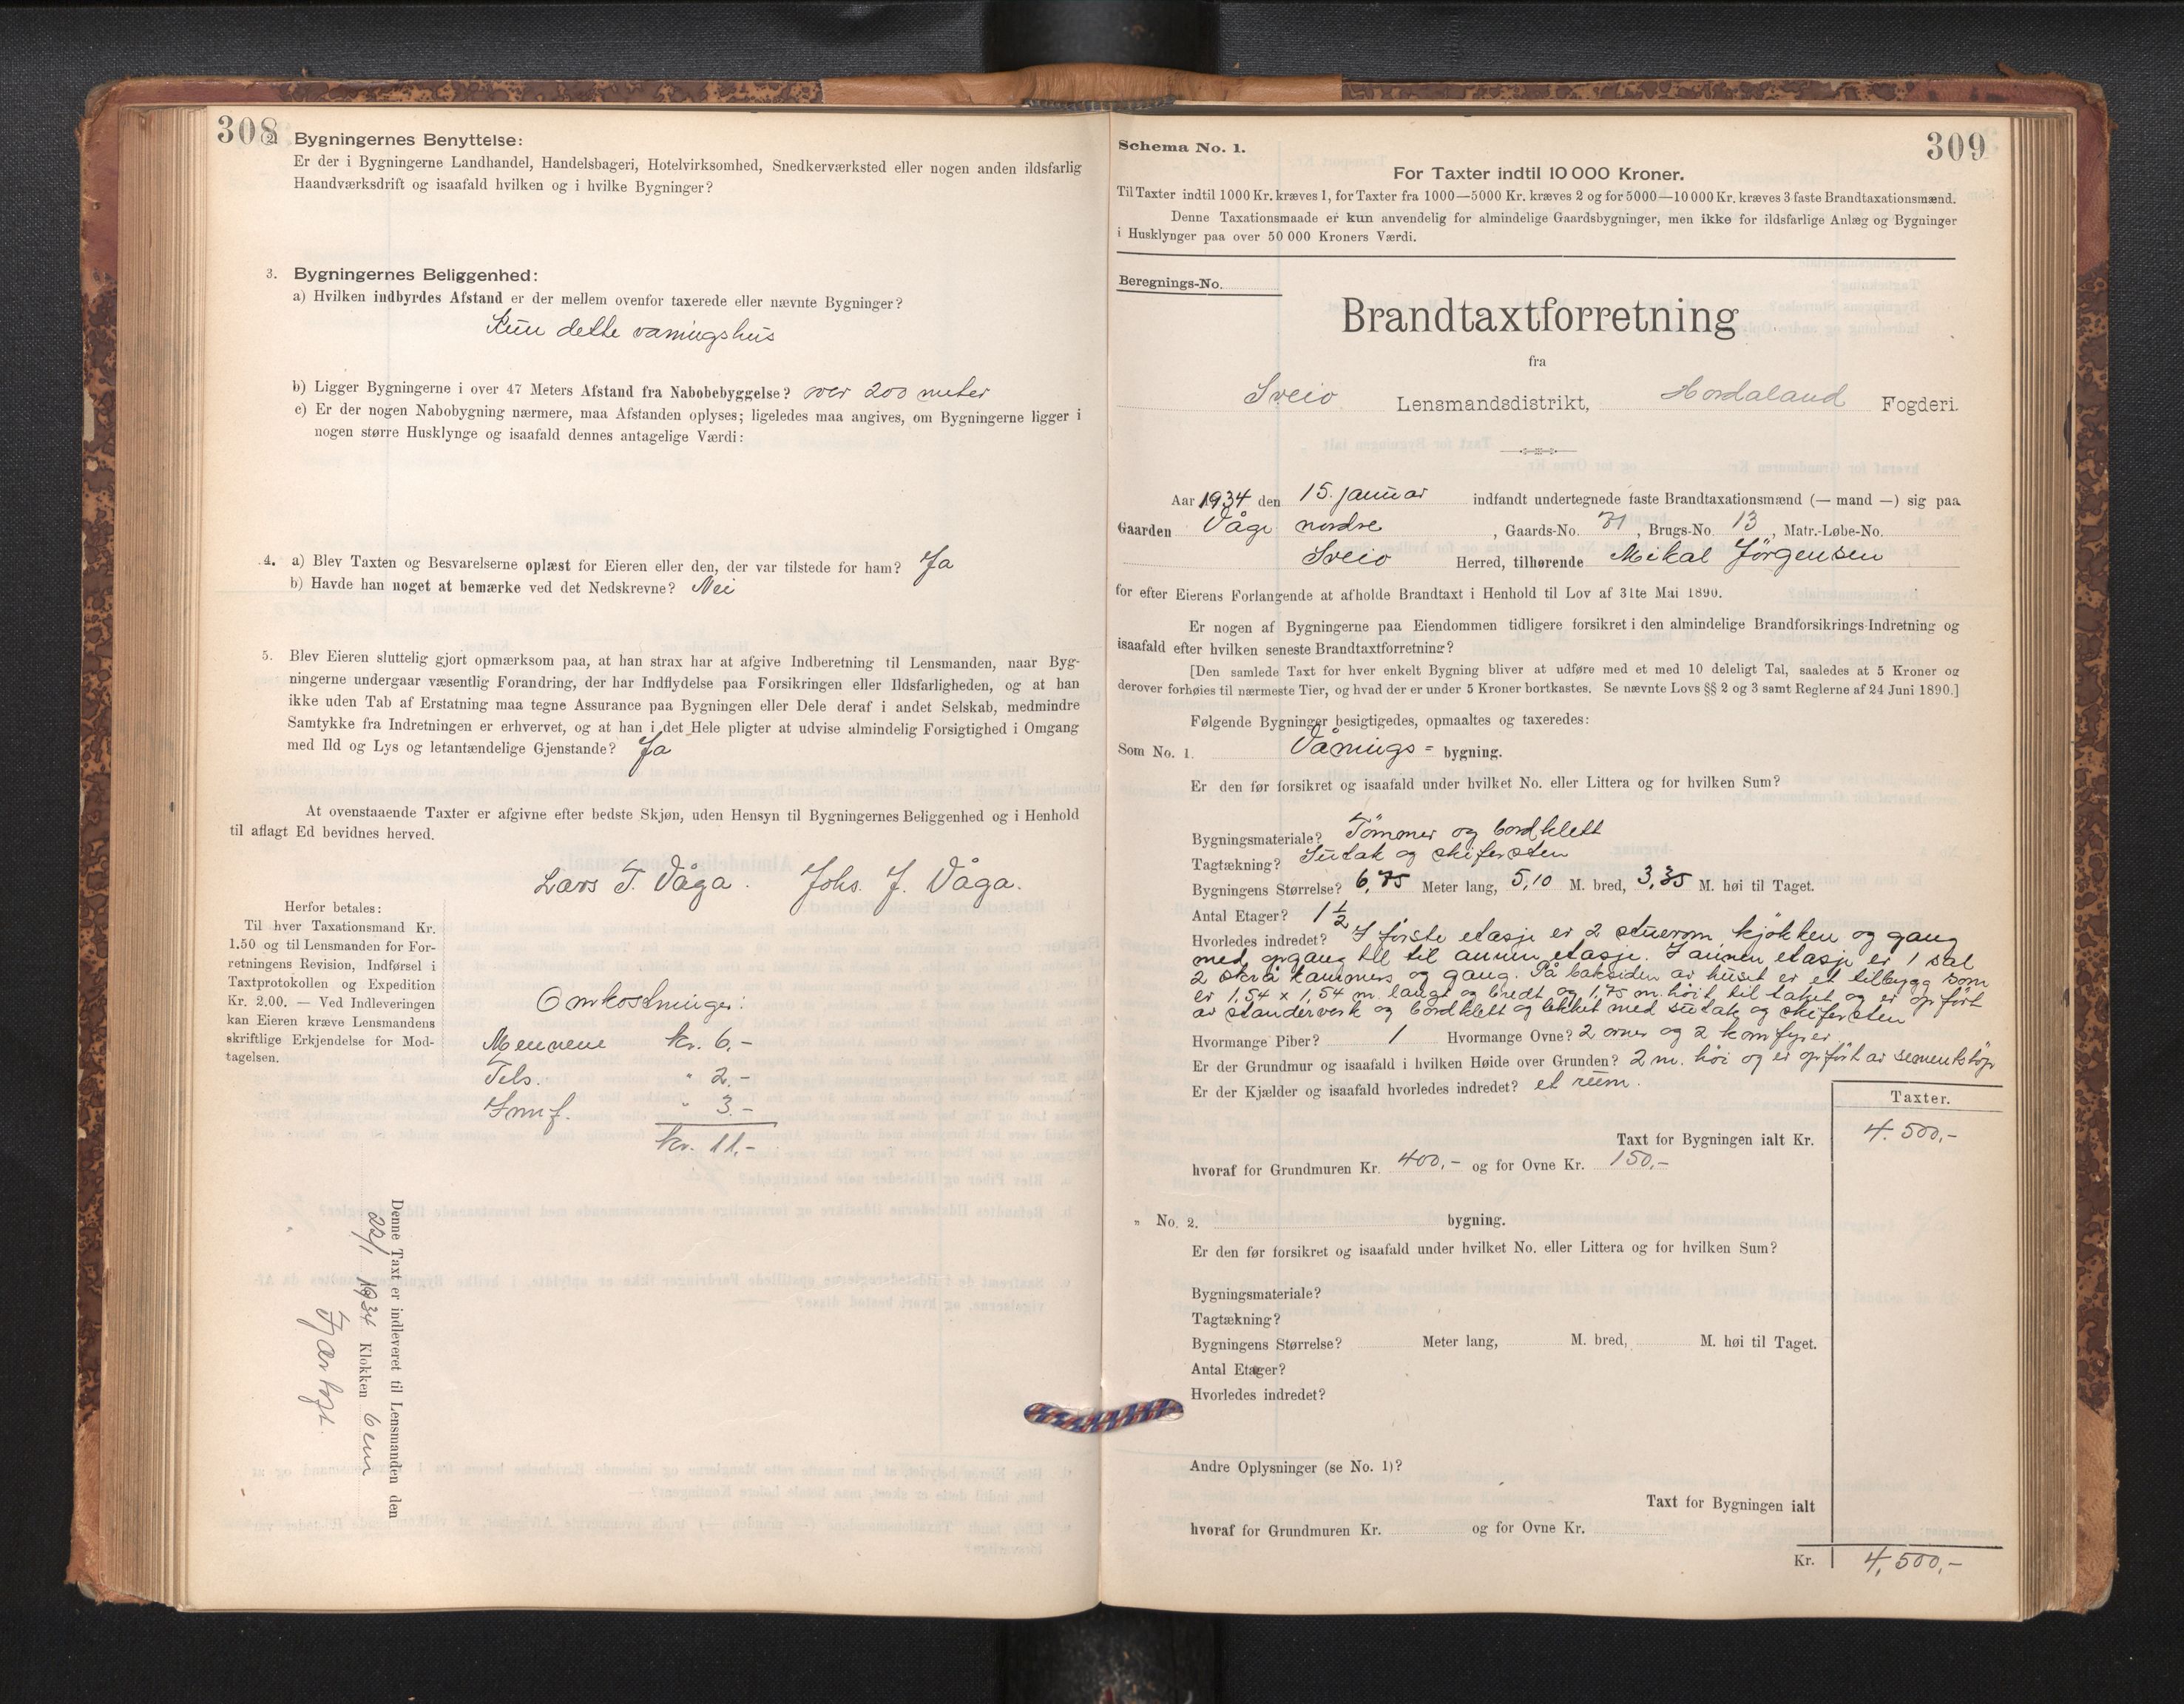 308
2. Bygningernes Benyttelse:
Er der i Bygningerne Landhandel, Handelsbageri, Hotelvirksomhed, Snedkerværksted eller nogen anden ildsfarlig
Haandværksdrift og isaafald hvilken og i hvilke Bygninger?
3. Bygningernes Beliggenhed:
a) Hvilken indbyrdes Afstand er der mellem ovenfor taxerede eller nævnte Bygninger?
Kun dette vaningshus
b) Ligger Bygningerne i over 47 Meters Afstand fra Nabobebyggelse? over 200 meter
c) Er der nogen Nabobygning nærmere, maa Afstanden oplyses; ligeledes maa angives, om Bygningerne ligger i
nogen større Husklynge og isaafald dennes antagelige Værdi:
4. a) Blev Taxten og Besvarelserne oplæst for Eieren eller den, der var tilstede for ham? Ja
b) Havde han noget at bemærke ved det Nedskrevne? Nei
5. Blev Eieren sluttelig gjort opmærksom paa, at han strax har at afgive Indberetning til Lensmanden, naar Byg-
ningerne undergaar væsentlig Forandring, der har Indflydelse paa Forsikringen eller Ildsfarligheden, og at han
ikke uden Tab af Erstatning maa tegne Assurance paa Bygningen eller Dele deraf i andet Selskab, medmindre
Samtykke fra Indretningen er erhvervet, og at han i det Hele pligter at udvise almindelig Forsigtighed i Omgang
med Ild og Lys og letantændelige Gjenstande? Ja
At ovenstaaende Taxter er afgivne efter bedste Skjøn, uden Hensyn til Bygningernes Beliggenhed og i Henhold
til aflagt Ed bevidnes herved.
Lars T. Våga. Johs. J. Våga.
Herfor betales:
Til hver Taxationsmand Kr.
1.50 og til Lensmanden for For-
retningens Revision, Indførsel i
Taxtprotokollen og Expedition
Kr. 2.00. — Ved Indleveringen
kan Eieren kræve Lensmandens
skriftlige Erkjendelse for Mod-
tagelsen.
Omkostninger:
Mennene kr. 6,-
Tels. " 2.-
Innf. " 3.-
kr. 11.-
Denne Taxt er indleveret til Lensmanden den
22/1 1934 Klokken 6 em
Fjærtoft.
309
Schema No. 1.
For Taxter indtil 10 000 Kroner.
Til Taxter indtil 1000 Kr. kræves 1, for Taxter fra 1000—5000 Kr. kræves 2 og for 5000—10 000 Kr. kræves 3 faste Brandtaxationsmænd.
Denne Taxationsmaade er kun anvendelig for almindelige Gaardsbygninger, men ikke for ildsfarlige Anlæg og Bygninger
i Husklynger paa over 50 000 Kroners Værdi.
Beregnings-No.
Brandtaxtforretning
fra
Sveio Lensmandsdistrikt, Hordaland Fogderi.
Aar 1934 den 15. januar indfandt undertegnede faste Brandtaxationsmænd (— mand —) sig paa
Gaarden Våge nordre, Gaards-No. 71, Brugs-No. 13, Matr.-Løbe-No.
Sveio Herred, tilhørende Mikal Jörgensen
for efter Eierens Forlangende at afholde Brandtaxt i Henhold til Lov af 31te Mai 1890.
Er nogen af Bygningerne paa Eiendommen tidligere forsikret i den almindelige Brandforsikrings-Indretning og
isaafald efter hvilken seneste Brandtaxtforretning?
[Den samlede Taxt for hver enkelt Bygning bliver at udføre med et med 10 deleligt Tal, saaledes at 5 Kroner og
derover forhøies til nærmeste Tier, og hvad der er under 5 Kroner bortkastes. Se nævnte Lovs §§ 2 og 3 samt Reglerne af 24 Juni 1890.]
Følgende Bygninger besigtigedes, opmaaltes og taxeredes:
Som No. 1. Vånings= bygning.
Er den før forsikret og isaafald under hvilket No. eller Littera og for hvilken Sum?
Bygningsmateriale? Tömmer og bordklett
Tagtækning? Sutak og skifersten
Bygningens Størrelse? 6,75 Meter lang, 5,10 M. bred, 3,35 M. høi til Taget.
Antal Etager? 1 1/2
Hvorledes indredet? I første etasje er 2 stuerom, kjökken og gang
med opgang till til annen etasje. I annen etasje er 1 sal
2 skrå kammers og gang. På baksiden av huset er et tilbygg som
er 1,54 x 1,54 m. langt og bredt og 1,75 m. höit til taket og er opfört
av standerverk og bordklett og tekket med sutak og skifersten
Hvormange Piber? 1 Hvormange Ovne? 2 ovner og 2 komfyrer
Er der Grundmur og isaafald i hvilken Høide over Grunden? 2 m. höi og er opfört av sementstöp
Er der Kjælder og isaafald hvorledes indredet? et rum.
Taxter.
Taxt for Bygningen ialt Kr. 4.500,-
hvoraf for Grundmuren Kr. 400,- og for Ovne Kr. 150,-
„ No. 2. bygning.
Er den før forsikret og isaafald under hvilket No. eller Littera og for hvilken Sum?
Bygningsmateriale?
Tagtækning?
Bygningens Størrelse? Meter lang, M. bred, M. høi til Taget.
Antal Etager?
Hvorledes indredet?
Andre Oplysninger (se No. 1)?
Taxt for Bygningen ialt
hvoraf for Grundmuren Kr. og for Ovne Kr.
Kr. 4,500,-